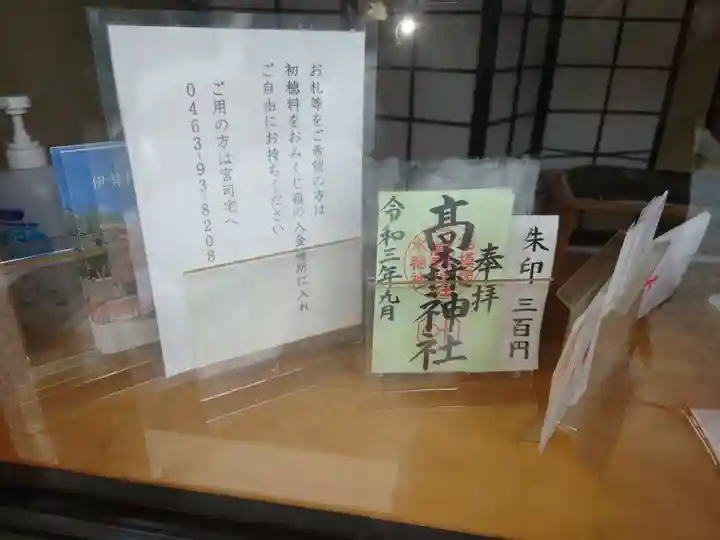 お札等をご希望の方は
初穂料をおみくじ箱の入金場所に入れ
ご自由にお持ちください
ご用の方は宮司宅へ
0463-93-8208
朱印 三百円
奉拝
高森神社
令和三年九月